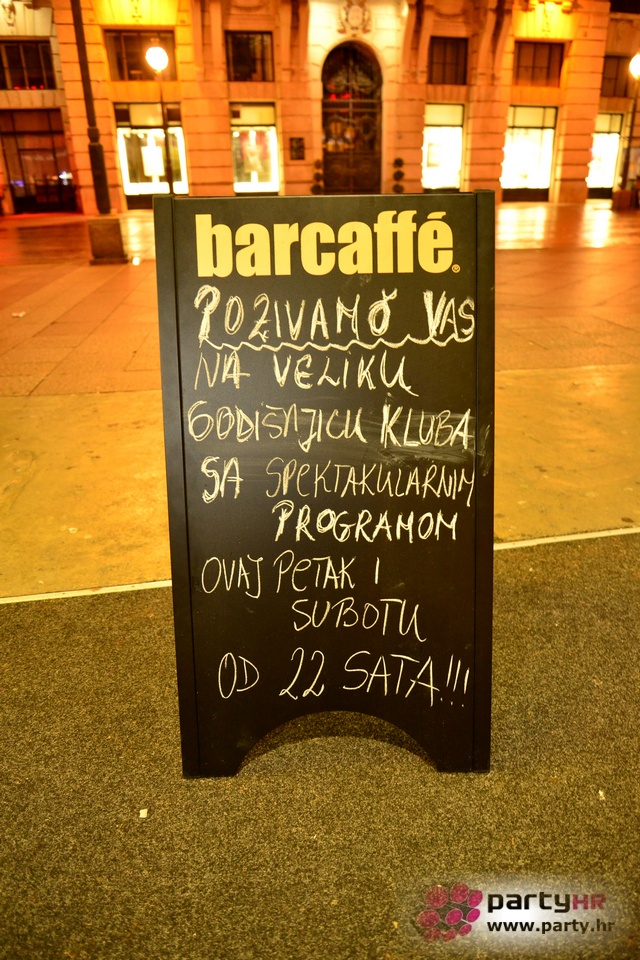 barcaffé®
POZIVAMO VAS
NA VELIKU
GODIŠNJICU KLUBA
SA SPEKTAKULARNIM
PROGRAMOM
OVAJ PETAK I
SUBOTU
OD 22 SATA!!!
partyHR
www.party.hr